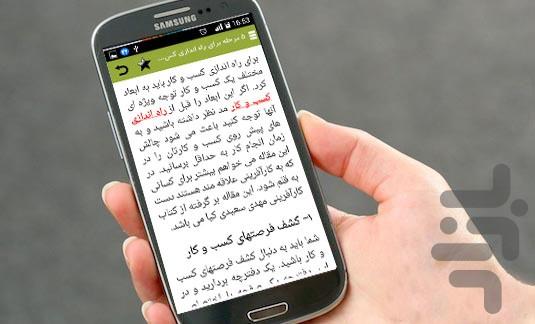 SAMSUNG
16:53
۵ مرحله برای راه اندازی کس...
برای راه اندازی کسب و کار باید به ابعاد
مختلف یک کسب و کار توجه ویژه ای
کرد. اگر این ابعاد را قبل از راه اندازی
کسب و کار مد نظر داشته باشید و به
آنها توجه کنید باعث می شود چالش
های پیش روی کسب و کارتان را در
زمان انجام کار به حداقل برسانید. در
این مقاله می خواهم بیشتر برای کسانی
که به کارآفرینی علاقه مند هستند دست
به قلم شود. این مقاله بر گرفته از کتاب
کارآفرینی مهدی سعیدی کیا می باشد.
۱- گشف فرصتهای کسب و کار
شما باید به دنبال کشف فرصتهای کسب
و کار باشید. یک دفترچه بردارید و در
بازار